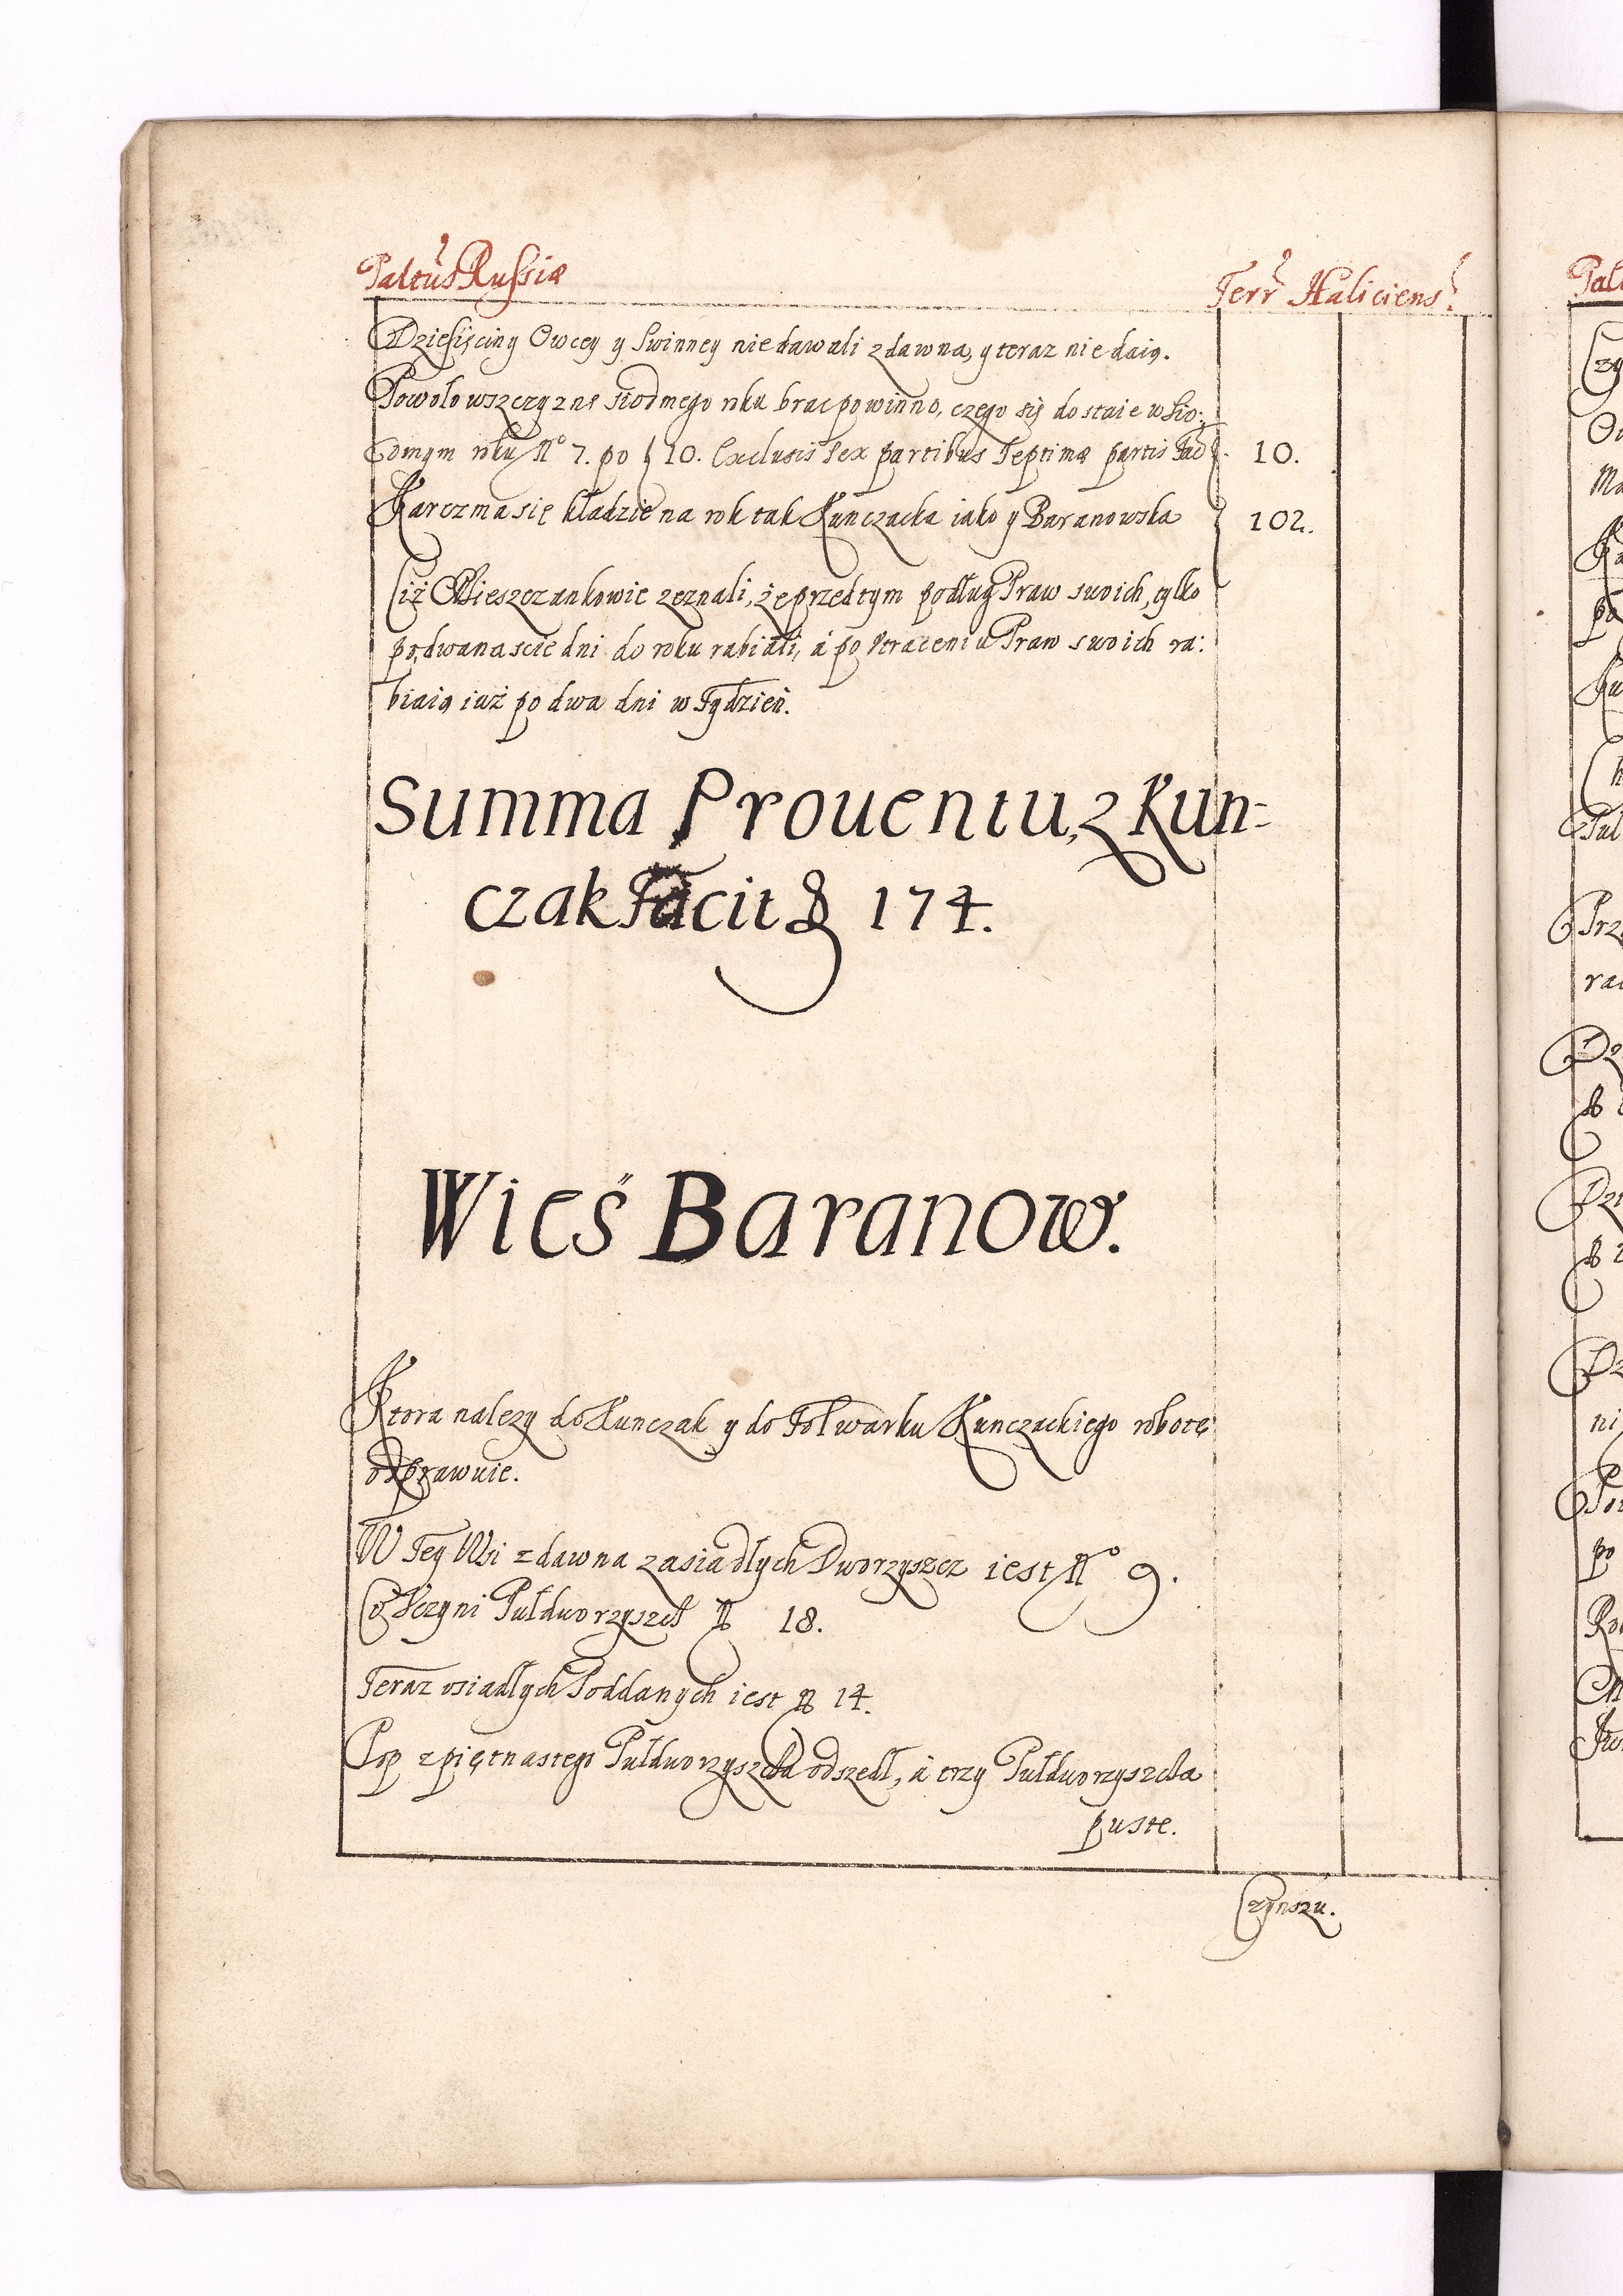 Paltus Russiæ
Terr Haliciens
Dziesięciny Owcey y Swinney nie dawali zdawna, y teraz nie daią.
Powołowszczyznę siodmego roku brac powinno, czego się dostaie w Sio:
dmym roku No 7. po f 10. Exclusis sex partibus Septimæ partis Fac f. 10.
Karczma się kładzie na rok tak Kunczacka iako y Baranowska f 102.
Ciż Mieszczankowie zeznali, że przedtym podług Praw swoich, tylko
po dwanascie dni do roku rabiali, á po straceniu Praw swoich ra:
biaią iuż po dwa dni w Tydzień.
Summa Prouentu, z Kun=
czak Facit f 174.
Wieś Baranow.
Ktora należy do Kunczak y do Folwarku Kunczackiego robotę
odprawuie.
W Tey Wsi zdawna zasiadłych Dworzyszcz iest No 9.
Co uczyni Pułdworzyszcz No 18.
Teraz osiadłych Poddanych iest No 14.
Pop z piętnastego Pułdworzyszcza odszedł, á trzy Pułdworzyszcza
puste.
Czynszu.